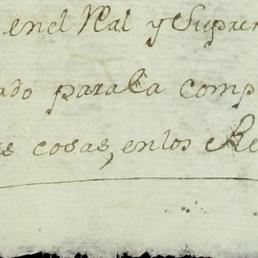 en el Rl. y Supre
ado para la comp
s cosas, en los Re